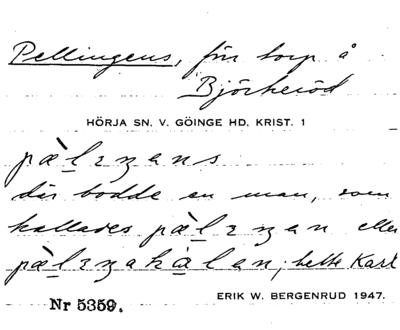 Pellingens, för torp å
Björkeröd
HÖRJA SN. V. GÖINGE HD. KRIST. 1
pὰlɪŋans
där bodde en man, som
kallades pὰlɪŋan eller
pὰlɪŋakὰlan; hette Karl
Nr 5359.
ERIK W. BERGENRUD 1947.